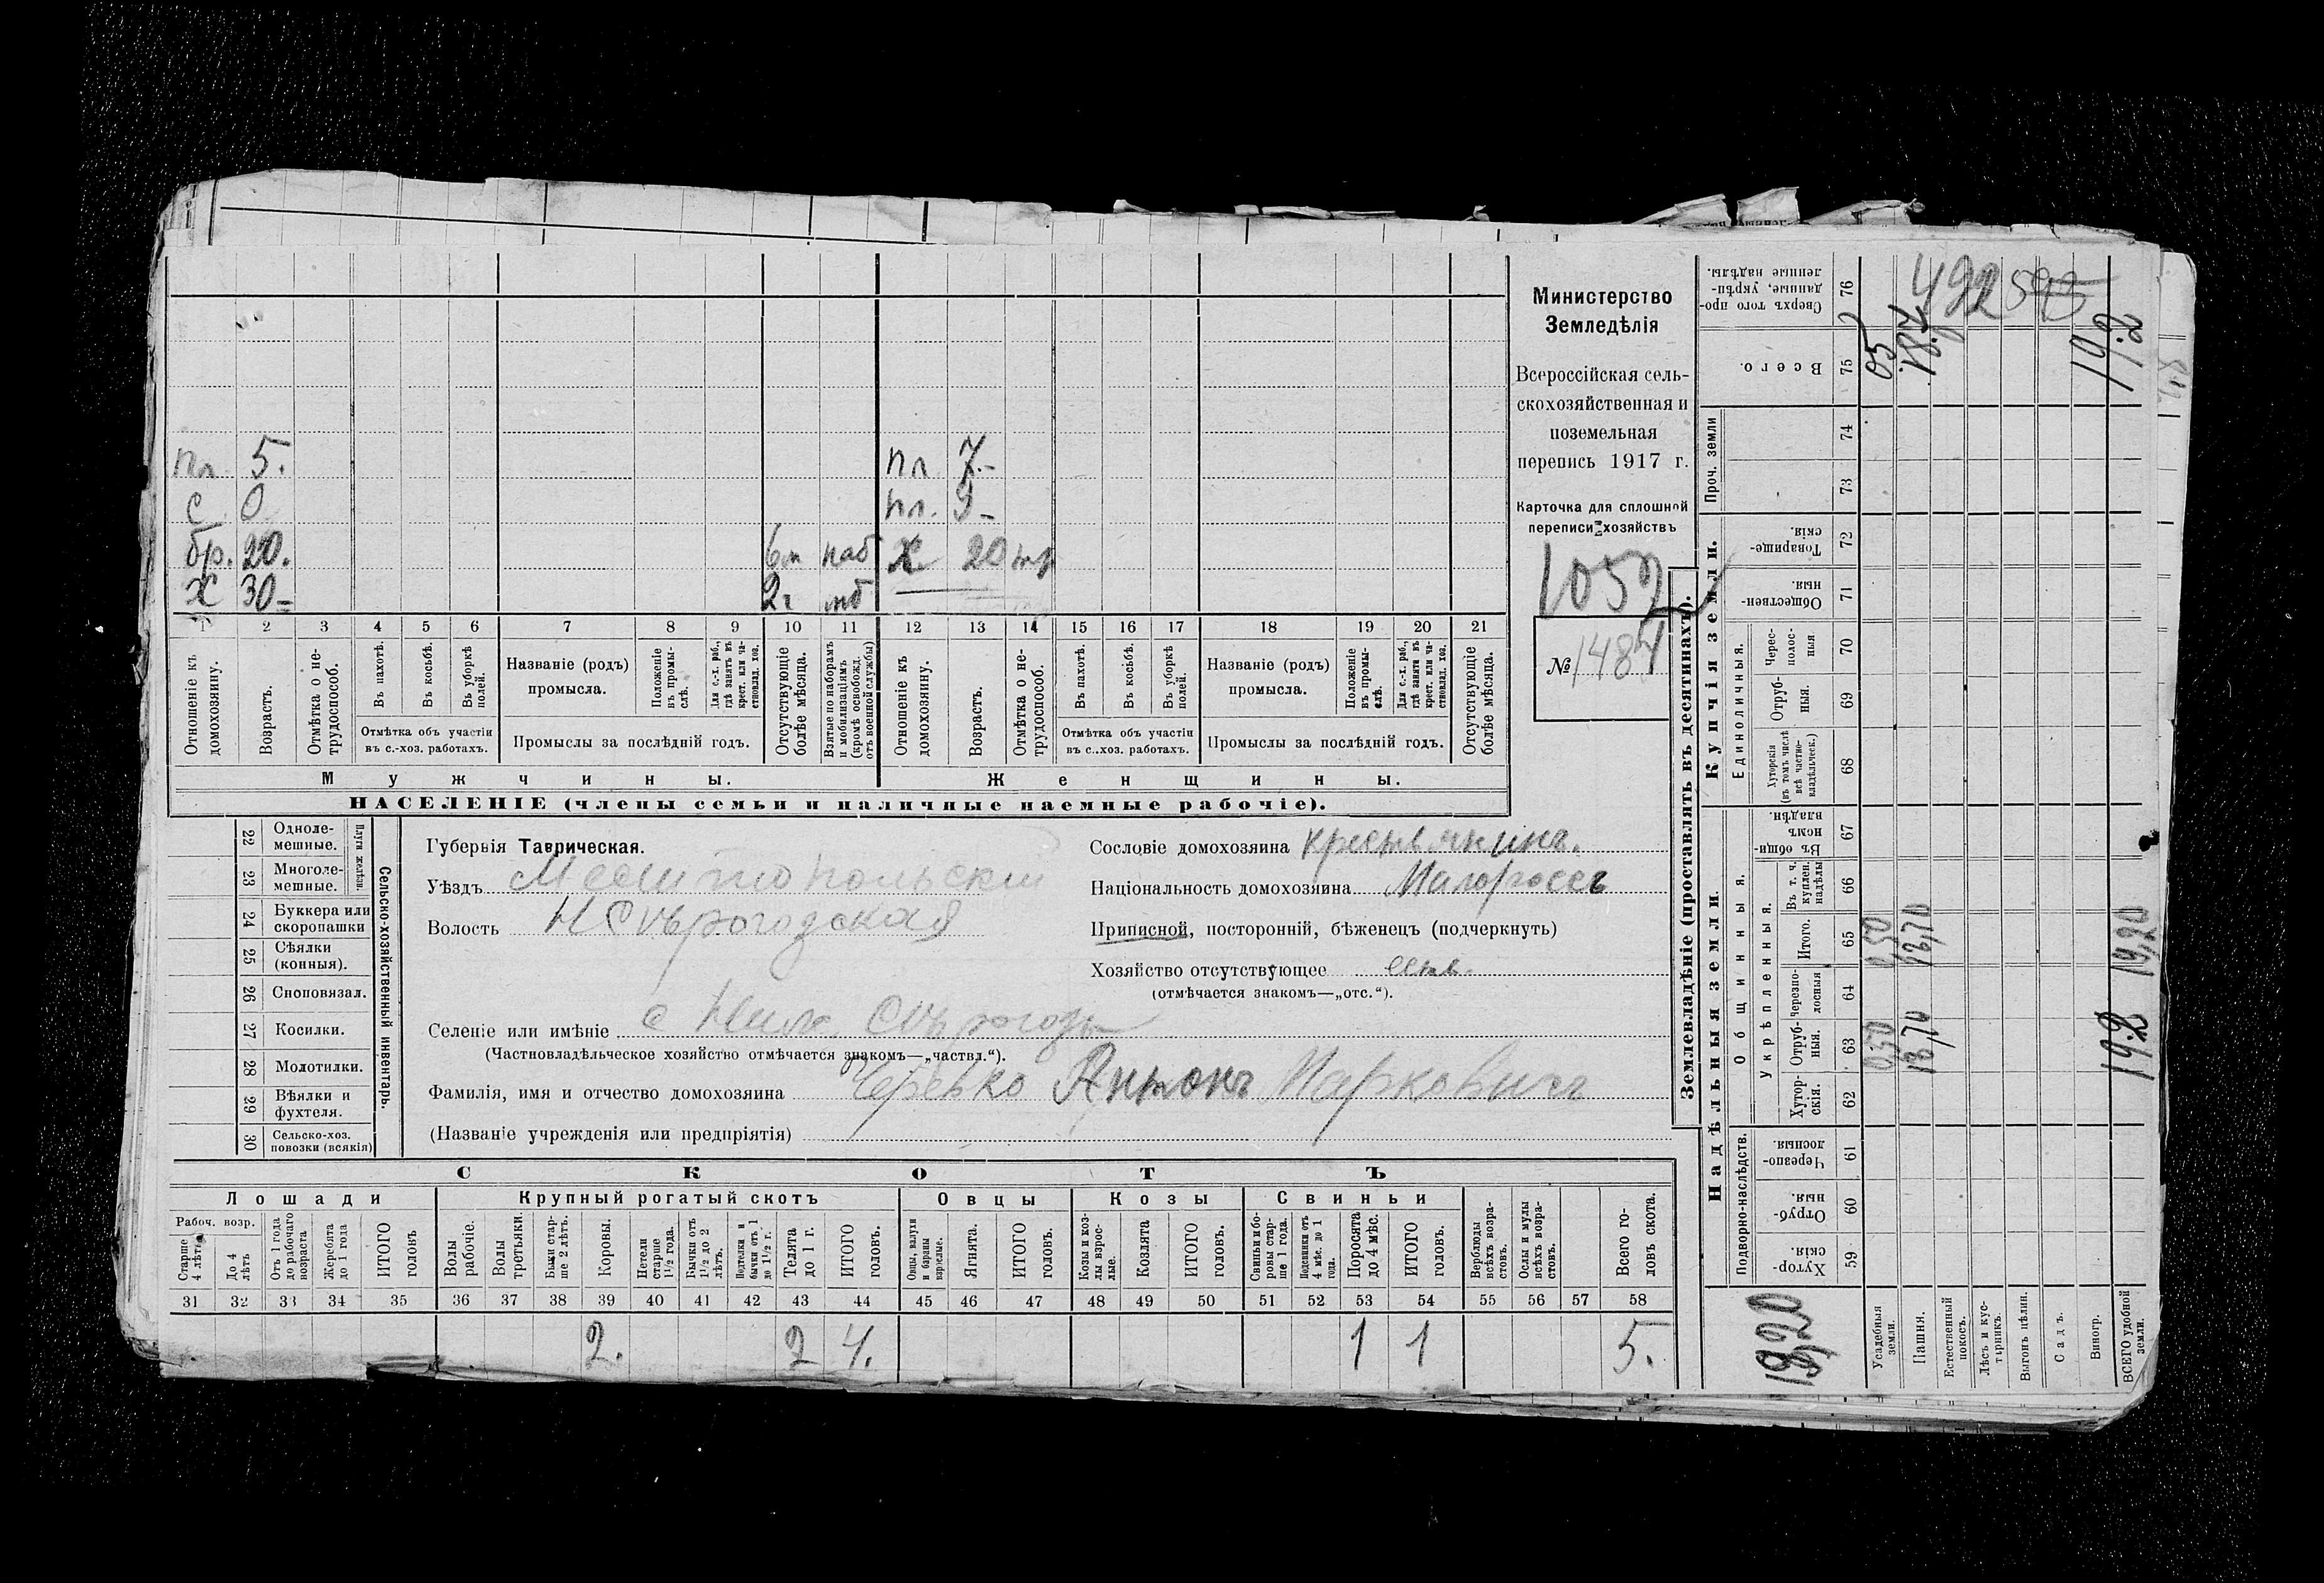 Министерство
Земледѣлія
Всероссійская сель-
скохозяйственная и
поземельная
перепись 1917 г.
Карточка для сплошной
переписи хозяйствъ
1057
№ 1487
пл. 5.
с 0
бр. 20. наб
х 30 2 г мб
пл 7.-
пл. 9-
х 20
1 2 3 4 5 6 7 8 9 10 11 12 13 14 15 16 17 18 19 20 21
Отношеніе къ домохозяину.
Возрастъ.
Отмѣтка о не-трудоспособ.
Въ пахотѣ.
Въ косьбѣ.
Въ уборкѣ полей.
Отмѣтка объ участіи въ с.-хоз. работахъ.
Названіе (родъ) промысла.
Положеніе въ промы-слѣ.
Для с.-х. раб., гдѣ занятъ въ крест. или ча-стновлад. хоз.
Промыслы за послѣдній годъ.
Отсутствующіе болѣе мѣсяца.
Взятые по наборамъ и мобилизаціямъ (кромѣ освобожд. отъ военной службы)
Отношеніе къ домохозяину.
Возрастъ.
Отмѣтка о не-трудоспособ.
Въ пахотѣ.
Въ косьбѣ.
Въ уборкѣ полей.
Отмѣтка объ участіи въ с.-хоз. работахъ.
Названіе (родъ) промысла.
Положеніе въ промы-слѣ.
Для с.-х. раб., гдѣ занятъ въ крест. или ча-стновлад. хоз.
Промыслы за послѣдній годъ.
Отсутствующіе болѣе мѣсяца.
Мужчины. Женщины.
НАСЕЛЕНІЕ (члены семьи и наличные наемные рабочіе).
Сельско-хозяйственный инвентарь.
Плуги желѣзн.
22 Одноле-мешные.
23 Многоле-мешные.
24 Буккера или скоропашки
25 Сѣялки (конныя).
26 Сноповязал.
27 Косилки.
28 Молотилки.
29 Вѣялки и фухтеля.
30 Сельско-хоз. повозки (всякія)
Губернія Таврическая.
Уѣздъ Мелитопольскій
Волость Н Сѣрогозская
Селеніе или имѣніе с Нижн. Сѣрогозы
(Частновладѣльческое хозяйство отмѣчается знакомъ—„частвл.“).
Фамилія, имя и отчество домохозяина Черевко Антонъ Марковичъ
(Названіе учрежденія или предпріятія)
Сословіе домохозяина крестьянинъ.
Національность домохозяина Малороссъ
Приписной, посторонній, бѣженецъ (подчеркнуть)
Хозяйство отсутствующее
(отмѣчается знакомъ—„отс.“).
СКОТЪ
Лошади Крупный рогатый скотъ Овцы Козы Свиньи
Рабоч. возр.
Старше 4 лѣтъ
До 4 лѣтъ
Отъ 1 года до рабочаго возраста
Жеребята до 1 года
ИТОГО головъ
Волы рабочіе.
Волы третьяки.
Быки стар-ше 2 лѣтъ.
Коровы.
Нетели старше 1½ года.
Бычки отъ 1½ до 2 лѣтъ.
Подтелки и бычки отъ 1 до 1½ г.
Телята до 1 г.
ИТОГО головъ.
Овцы, валухи и бараны взрослые.
Ягнята.
ИТОГО головъ.
Козы и коз-лы взрос-лые.
Козлята
ИТОГО головъ.
Свиньи и бо-ровы стар-ше 1 года.
Подсвинки отъ 4 мѣс. до 1 года.
Поросята до 4 мѣс.
ИТОГО головъ.
Верблюды всѣхъ возра-стовъ.
Ослы и мулы всѣхъ возра-стовъ.
Всего го-ловъ скота.
31 32 33 34 35 36 37 38 39 40 41 42 43 44 45 46 47 48 49 50 51 52 53 54 55 56 57 58
2. 2 4. 1 1 5.
Землевладѣніе (проставлять въ десятинахъ).
Надѣльныя земли. Купчія земли. Проч. земли
Подворно-наслѣдств.
Общинныя.
Укрѣпленныя.
Единоличныя.
Хутор-скія. 59
Отруб-ныя. 60
Черезпо-лосныя. 61
Хутор-скія. 62
Отруб-ныя. 63
черезпо-лосныя 64
Итого. 65
Въ т. ч. куплен. надѣлы 66
Въ общи-номъ владѣн. 67
Хуторскія (въ томъ числѣ всѣ частно-владѣльческ.) 68
Отруб-ныя. 69
Черес-полос-ныя 70
Обществен-ныя. 71
Товарище-скія. 72
73
74
Всего. 75
Сверхъ того про-данные, укрѣп-ленные надѣлы. 76
Усадебныя земли. 0,50 0,50 05
Пашня. 18,70 18,70 18.7
Естественный покосъ.
Лѣсъ и кус-тарникъ.
Выгонъ цѣлин.
Садъ.
Виногр.
ВСЕГО удобной земли. 19.2 19,20 19.2
492